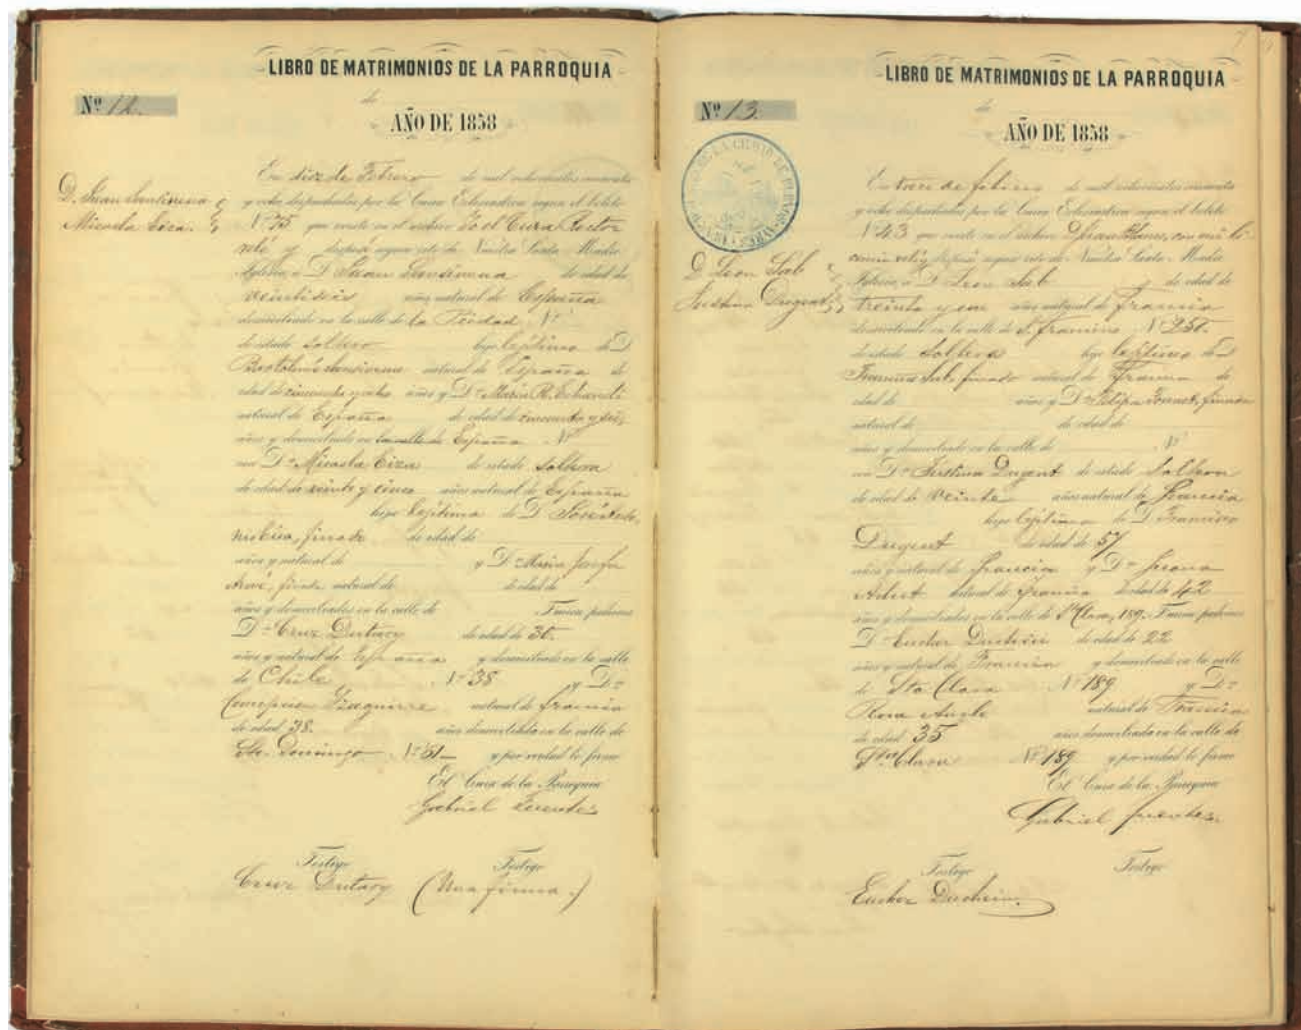 LIBRO DE MATRIMONIOS DE LA PARROQUIA
Nº 12.
de
AÑO DE 1858
D. Juan Sansinena
Micaela Eiza.
En diez de Febrero de mil ochocientos cincuenta
y ocho despachados por la Curia Eclesiastica segun el boleto
Nº 75 que existe en el archivo Yo el Cura Rector
velé y desposé segun rito de Nuestra Santa Madre
Iglesia, a D. Juan Sansinena de edad de
veintiseis años natural de España
domiciliado en la calle de la Piedad, Nº
de estado soltero hijo legitimo de D.
Bartolomé Sansinena natural de España de
edad de cincuenta y ocho años y Dª Maria R.
natural de España de edad de cincuenta y seis
años y domiciliado en la calle de España Nº
con Dª Micaela Eiza de estado soltera
de edad de veinte y cinco años natural de España
hija legitima de D. José
Eiza, finado de edad de
años y natural de y Dª Maria Josefa
finada natural de de edad de
años y domiciliados en la calle de Fueron padrinos
D. Cruz Dutary de edad de 30.
años y natural de España y domiciliado en la calle
de Chile Nº 38 y Dª
Concepcion Yzaguirre natural de Francia
de edad 38. años domiciliada en la calle de
Sto. Domingo Nº 51 y por verdad lo firmo
El Cura de la Parroquia
Gabriel Fuentes
Testigo Testigo
Cruz Dutary (Una firma.)
LIBRO DE MATRIMONIOS DE LA PARROQUIA
Nº 13.
de
AÑO DE 1858
D. Leon Sab
Justina Dugent
En trece de febrero de mil ochocientos cincuenta
y ocho despachados por la Curia Eclesiastica segun el boleto
Nº 43 que existe en el archivo con mi li-
cencia veló y desposó segun rito de Nuestra Santa Madre
Iglesia, a D. Leon Sab de edad de
treinta y años natural de Francia
domiciliado en la calle de S. Francisco Nº 251.
de estado Soltero hijo legitimo de D.
Francisco Sab, finado natural de Francia de
edad de años y Dª Felipa finada
natural de de edad de
años y domiciliado en la calle de Nº
con Dª Justina Dugent de estado Soltera
de edad de veinte años natural de Francia
hija legitima de D. Francisco
Dugent de edad de 57
años y natural de Francia y Dª Juana
natural de Francia de edad de 42
años y domiciliados en la calle de Sta Clara, 189. Fueron padrinos
D. de edad de 22
años y natural de Francia y domiciliado en la calle
de Sta Clara Nº 189 y Dª
Rosa natural de Francia
de edad 35 años domiciliada en la calle de
Sta Clara Nº 189 y por verdad lo firmo
El Cura de la Parroquia
Gabriel Fuentes.
Testigo Testigo